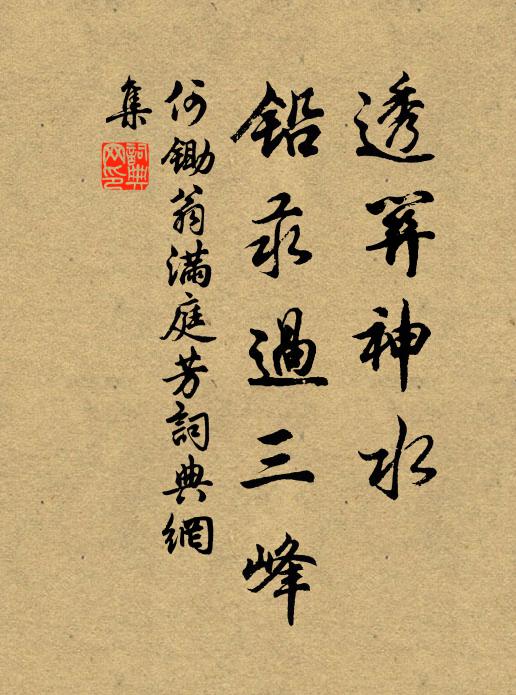 透關神水
鉛汞過三峰
何鋤翁滿庭芳詞典網
集
詞典
网印